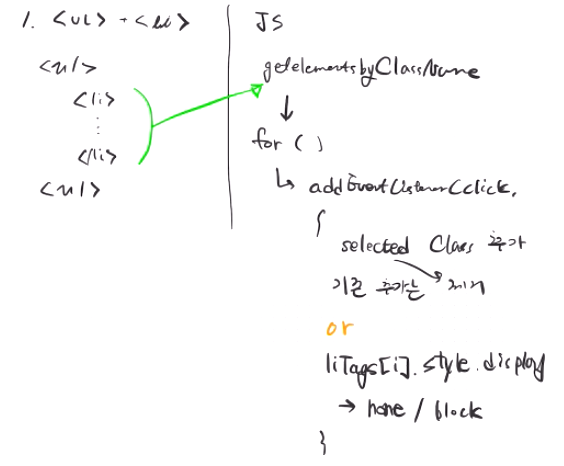 1. <UL> - <li>
<ul>
<li>
⋮
</li>
<ul>
JS
getelementsbyClassName
↓
for ( )
↳ addEventListener(click,
{
selected Class 추가
기존 추가는 제거
or
liTags[i].style.display
→ none / block
}